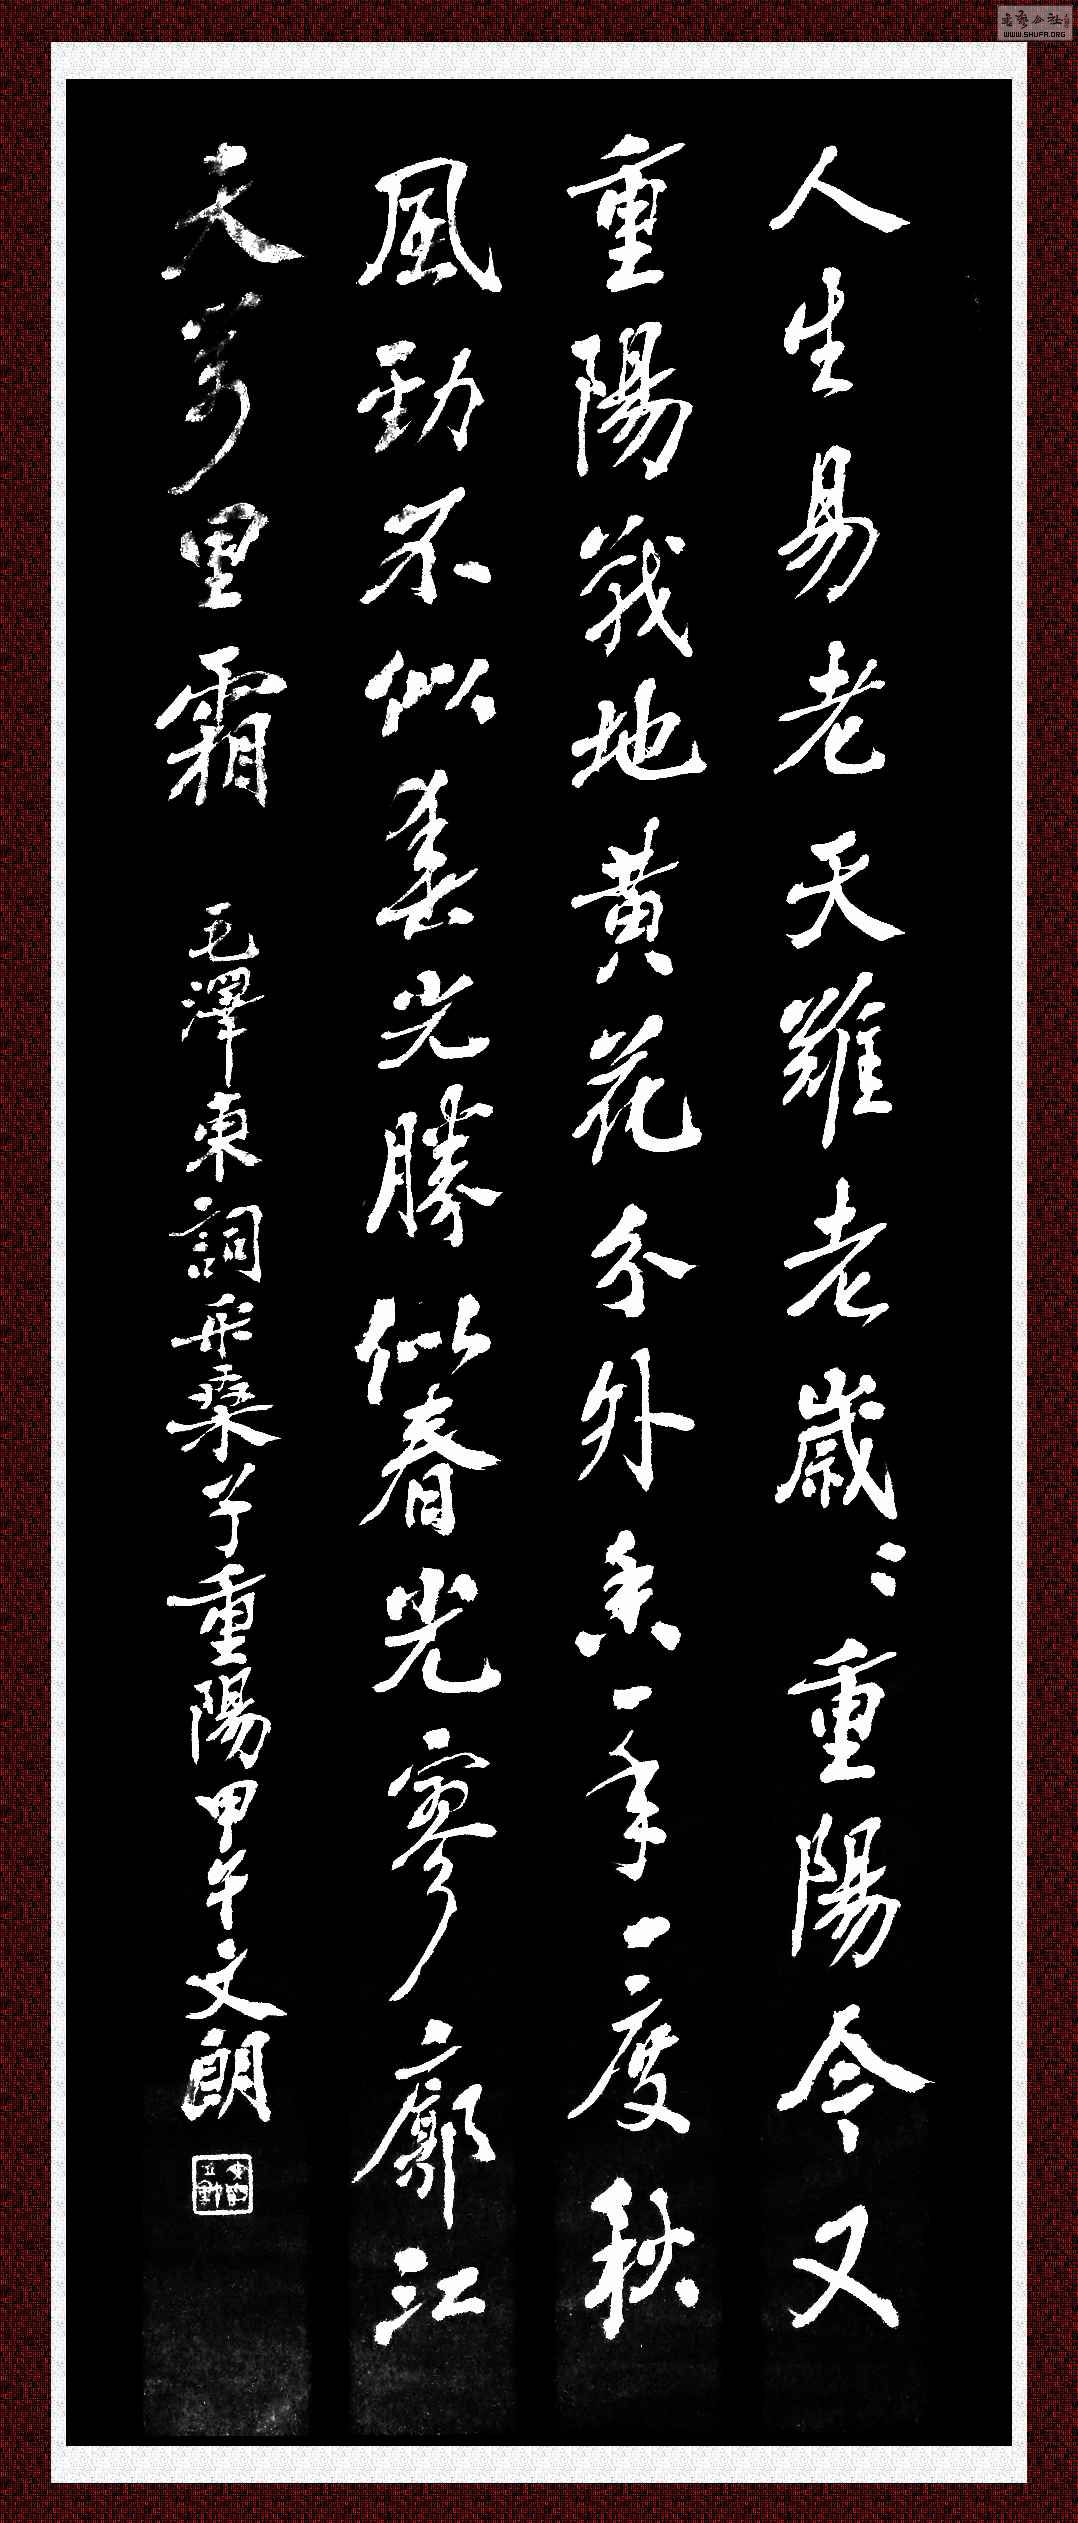 人生易老天難老歲々重陽今又
重陽戰地黃花分外香一年一度秋
風勁不似春光勝似春光寥廓江
天萬里霜
毛澤東詞采桑子重陽甲午文朗
書藝公社
WWW.SHUFA.ORG